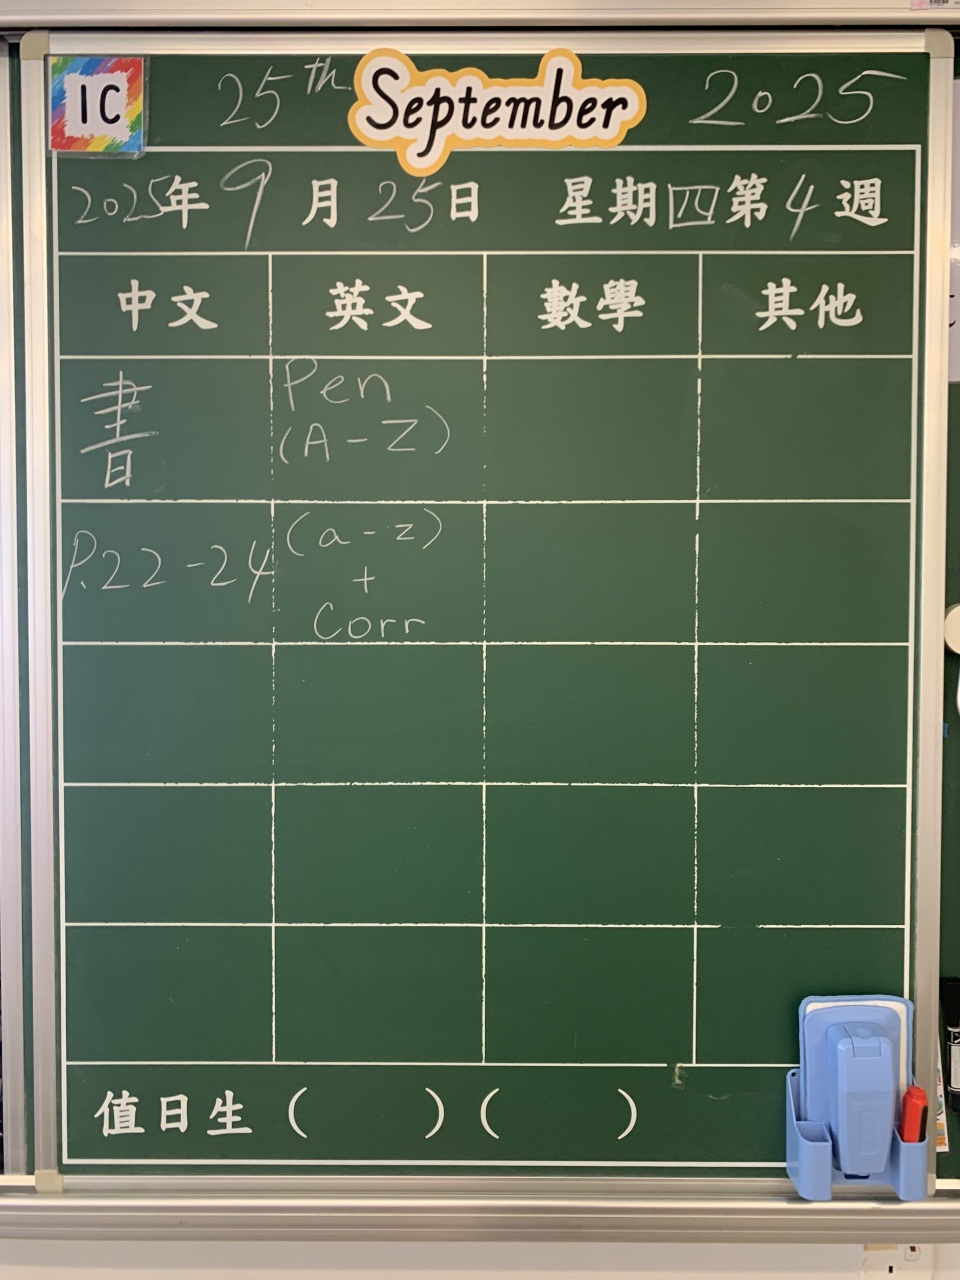 1C
25th September 2025
2025年9月25日 星期四第4週
中文 英文 數學 其他
書 Pen
(A-Z)
P.22-24 (a-z)
+
Corr
值日生 ( ) ( )